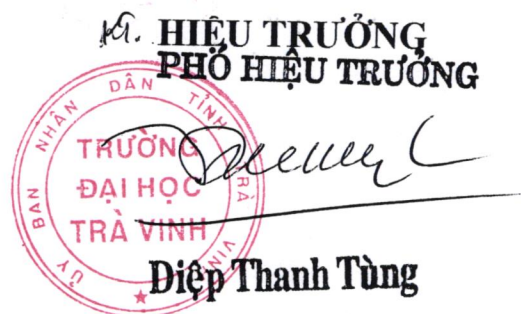 KT. HIỆU TRƯỞNG
PHÓ HIỆU TRƯỞNG
ỦY BAN NHÂN DÂN TỈNH TRÀ VINH
TRƯỜNG
ĐẠI HỌC
TRÀ VINH
Diệp Thanh Tùng